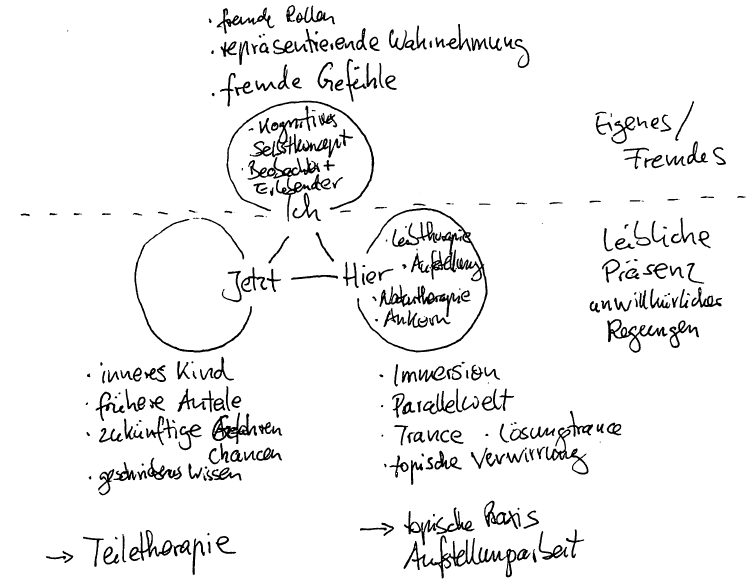 · fremde Rollen
· repräsentierende Wahrnehmung
· fremde Gefühle
· Kognitives
Selbstkonzept
Beobachter +
Erlebender
Eigenes /
Fremdes
Ich
Jetzt
Hier
· Leibtherapie
· Aufstellung
· Naturtherapie
· Ankern
Leibliche
Präsenz
unwillkürliches
Regeungen
· inneres Kind
· frühere Anteile
· zukünftige Gefahren
Chancen
· Wissen
→ Teiletherapie
· Immersion
· Parallelwelt
· Trance · Lösungstrance
· topische Verwirrung
→ topische Praxis
Aufstellungarbeit